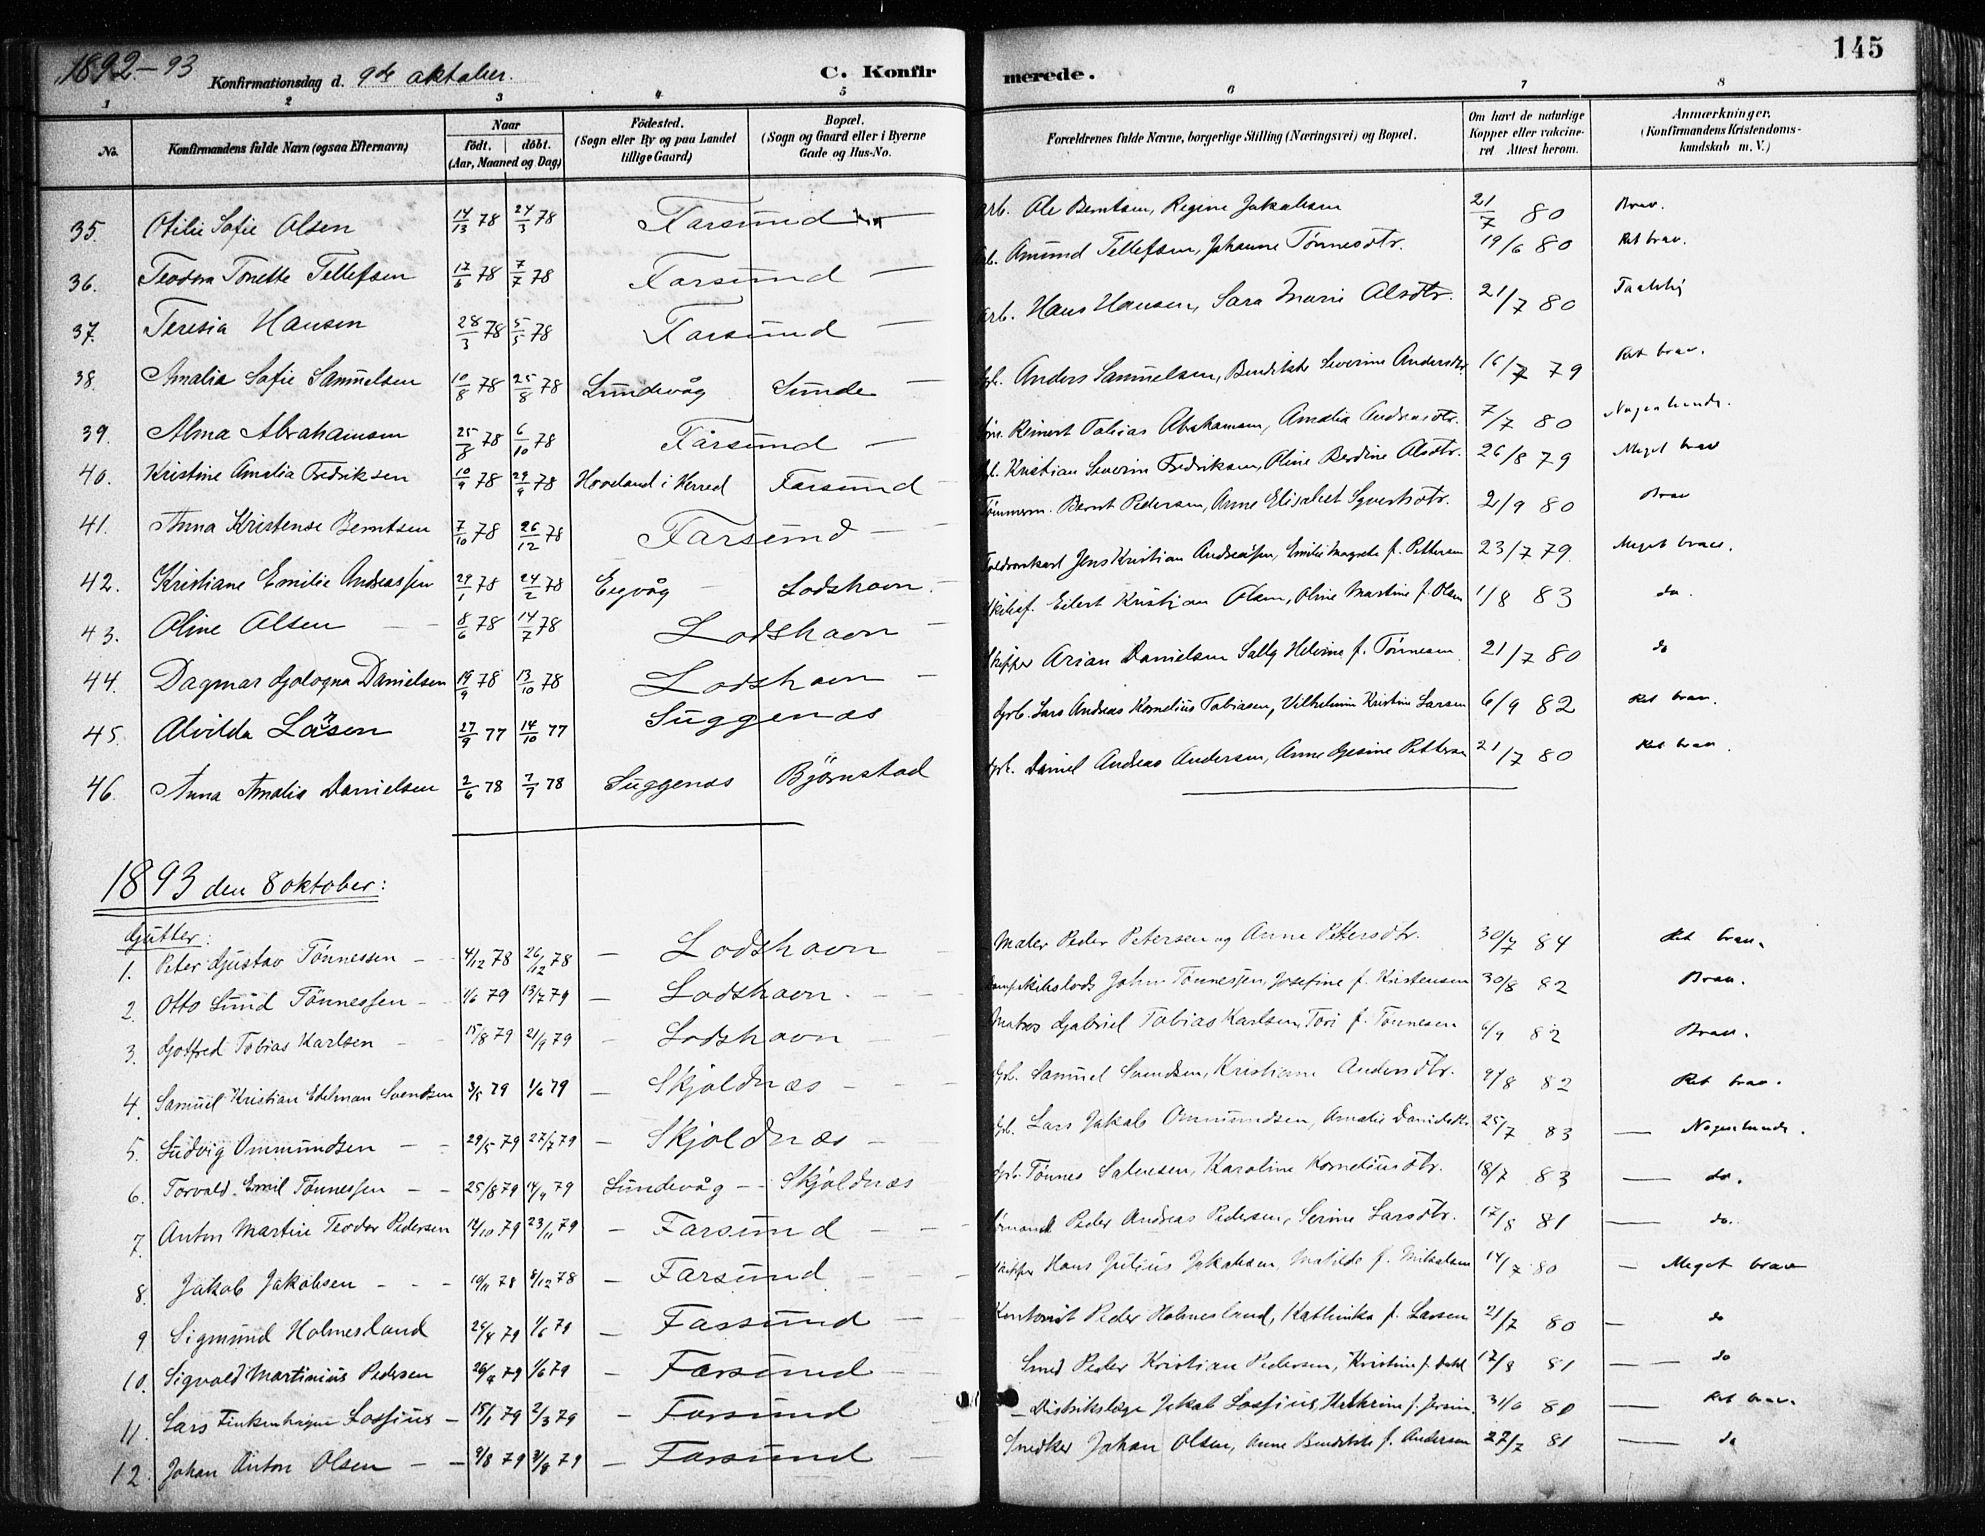 1892-93 Konfirmationsdag d. 9de oktober. C. Konfirmerede. 145
1 2 3 4 5 6 7 8
No. Konfirmandens fulde Navn (ogsaa Efternavn) Naar født. døbt. (Aar, Maaned og Dag) Fødested. (Sogn eller By og paa Landet tillige Gaard) Bopæl. (Sogn og Gaard eller i Byerne Gade og Hus-No. Forældrenes fulde Navne, borgerlige Stilling (Næringsvei) og Bopæl. Om havt de naturlige Kopper eller vaccineret Attest herom. Anmærkninger. (Konfirmandens Kristendomskundskab m. V.)
35. Otilie Sofie Olsen 14/13 78 24/3 78 Farsund Arb. Ole Berntsen, Regine Jakobsen 21/7 80 Brav.
36. Teodora Tonette Tellefsen 17/6 78 7/7 78 Farsund Amund Tellefsen, Johanne Tønnesdtr. 19/6 80 Ret brav.
37. Teresia Hansen 28/3 78 5/5 78 Farsund Arb. Hans Hansen, Sara Marie Olsdtr. 21/7 80 Taalelig
38. Amalia Sofie Samuelsen 10/8 78 25/8 78 Lundevåg Sunde Anders Samuelsen, Severine Andersdtr. 16/7 79 Ret brav.
39. Alma Abrahamsen 25/8 78 6/10 78 Farsund Reinert Tobias Abrahamsen, Amalia Andreasdtr. 7/7 80
40. Kristine Amalia Fredriksen 10/9 78 29/9 78 Hoveland i Herred Farsund Kristian Severin Fredriksen, Oline Berdine Olsdtr. 26/8 79 Meget brav
41. Anna Kristense Berntsen 7/10 78 26/12 78 Farsund Tømmerm. Bernt Pedersen, Anne Elisabet Syvertsdtr. 2/9 80 Brav
42. Kristiane Emilie Andreassen 29/1 78 24/2 78 Eigvåg Lodshavn. Jens Kristian Andreassen, Emilie Magrete f. Pettersen 23/7 79. Meget brav.
43. Oline Olsen 8/6 78 14/7 78 Lodshavn Eilert Kristian Olsen, Oline Martine f. Olsen 1/8 83 do.
44. Dagmar Gologna Danielsen 19/9 78 13/10 78 Lodshavn Skipper Arian Danielsen Sally Helvine f. Tønnesen 21/7 80 do
45. Alvilda Låsen 27/9 77 14/10 77 Luggenæs Grb. Lars Andreas Kornelius Tobiasen, Vilhelmine Kristine Larsen 6/9 82 Ret brav.
46. Anna Amalia Danielsen 2/6 78 7/7 78 Luggenæs Bjørnstad Grb. Daniel Andreas Andersen, Anne Gesine Pettersen 21/7 80 Ret brav.
1893 den 8 oktober:
Gutter:
1. Peter Gustav Tønnessen 4/12 78 26/12 78 Lodshavn Peder Petersen og Anne Pettersdtr. 30/7 84 Ret brav.
2. Otto Lund Tønnessen 1/6 79 13/7 79 Lodshavn. John Tønnessen, Josefine f. Kristensen 30/8 82 Brav.
3. Gotfred Tobias Karlsen 15/8 79 21/9 79 Lodshavn Matros Gabriel Tobias Karlsen, Tori f. Tønnesen 6/9 82 Brav.
4. Samuel Kristian Edelman Svendsen 3/5 79 1/6 79 Skjoldnæs Grb. Samuel Svendsen, Kristiane Andersdtr. 9/8 82 Ret brav.
5. Ludvig Ommundsen 29/5 79 27/7 79 Skjoldnæs Grb. Lars Jakob Ommundsen, Amalie Danielsdtr. 25/7 83
6. Torvald Emil Tønnessen 25/8 79 14/9 79 Lundevåg Skjoldnæs Grb. Tønnes Salvesen, Karoline Korneliusdtr. 18/7 83 do.
7. Anton Martin Teodor Pedersen 14/10 79 23/11 79 Farsund Peder Andreas Pedersen, Serine Larsdtr. 17/8 81 do.
8. Jakob Jakobsen 19/11 78 8/12 78 Farsund Skipper Hans Julius Jakobsen, Matilde f. 14/7 80 Meget brav
9 Sigmund Holmesland 26/4 79 1/6 79 Farsund Kontorist Peder Holmesland, Kathinka f. Larsen 21/7 80 do
10. Sigvald Martinius Pedersen 26/4 79 1/6 79 Farsund Smed Peder Kristian Pedersen, Kristine f. Dahl 17/8 81 do
11. Lars Finkenhagen Lossius 15/1 79 2/3 79 Farsund Distriktslæge Jakob Lossius, Kathrine f. 31/6 80 Ret brav.
12. Johan Anton Olsen 9/8 79 3/8 79 Farsund Snedker Johan Olsen, Anne Bendikte f. Andersen 27/7 81 do